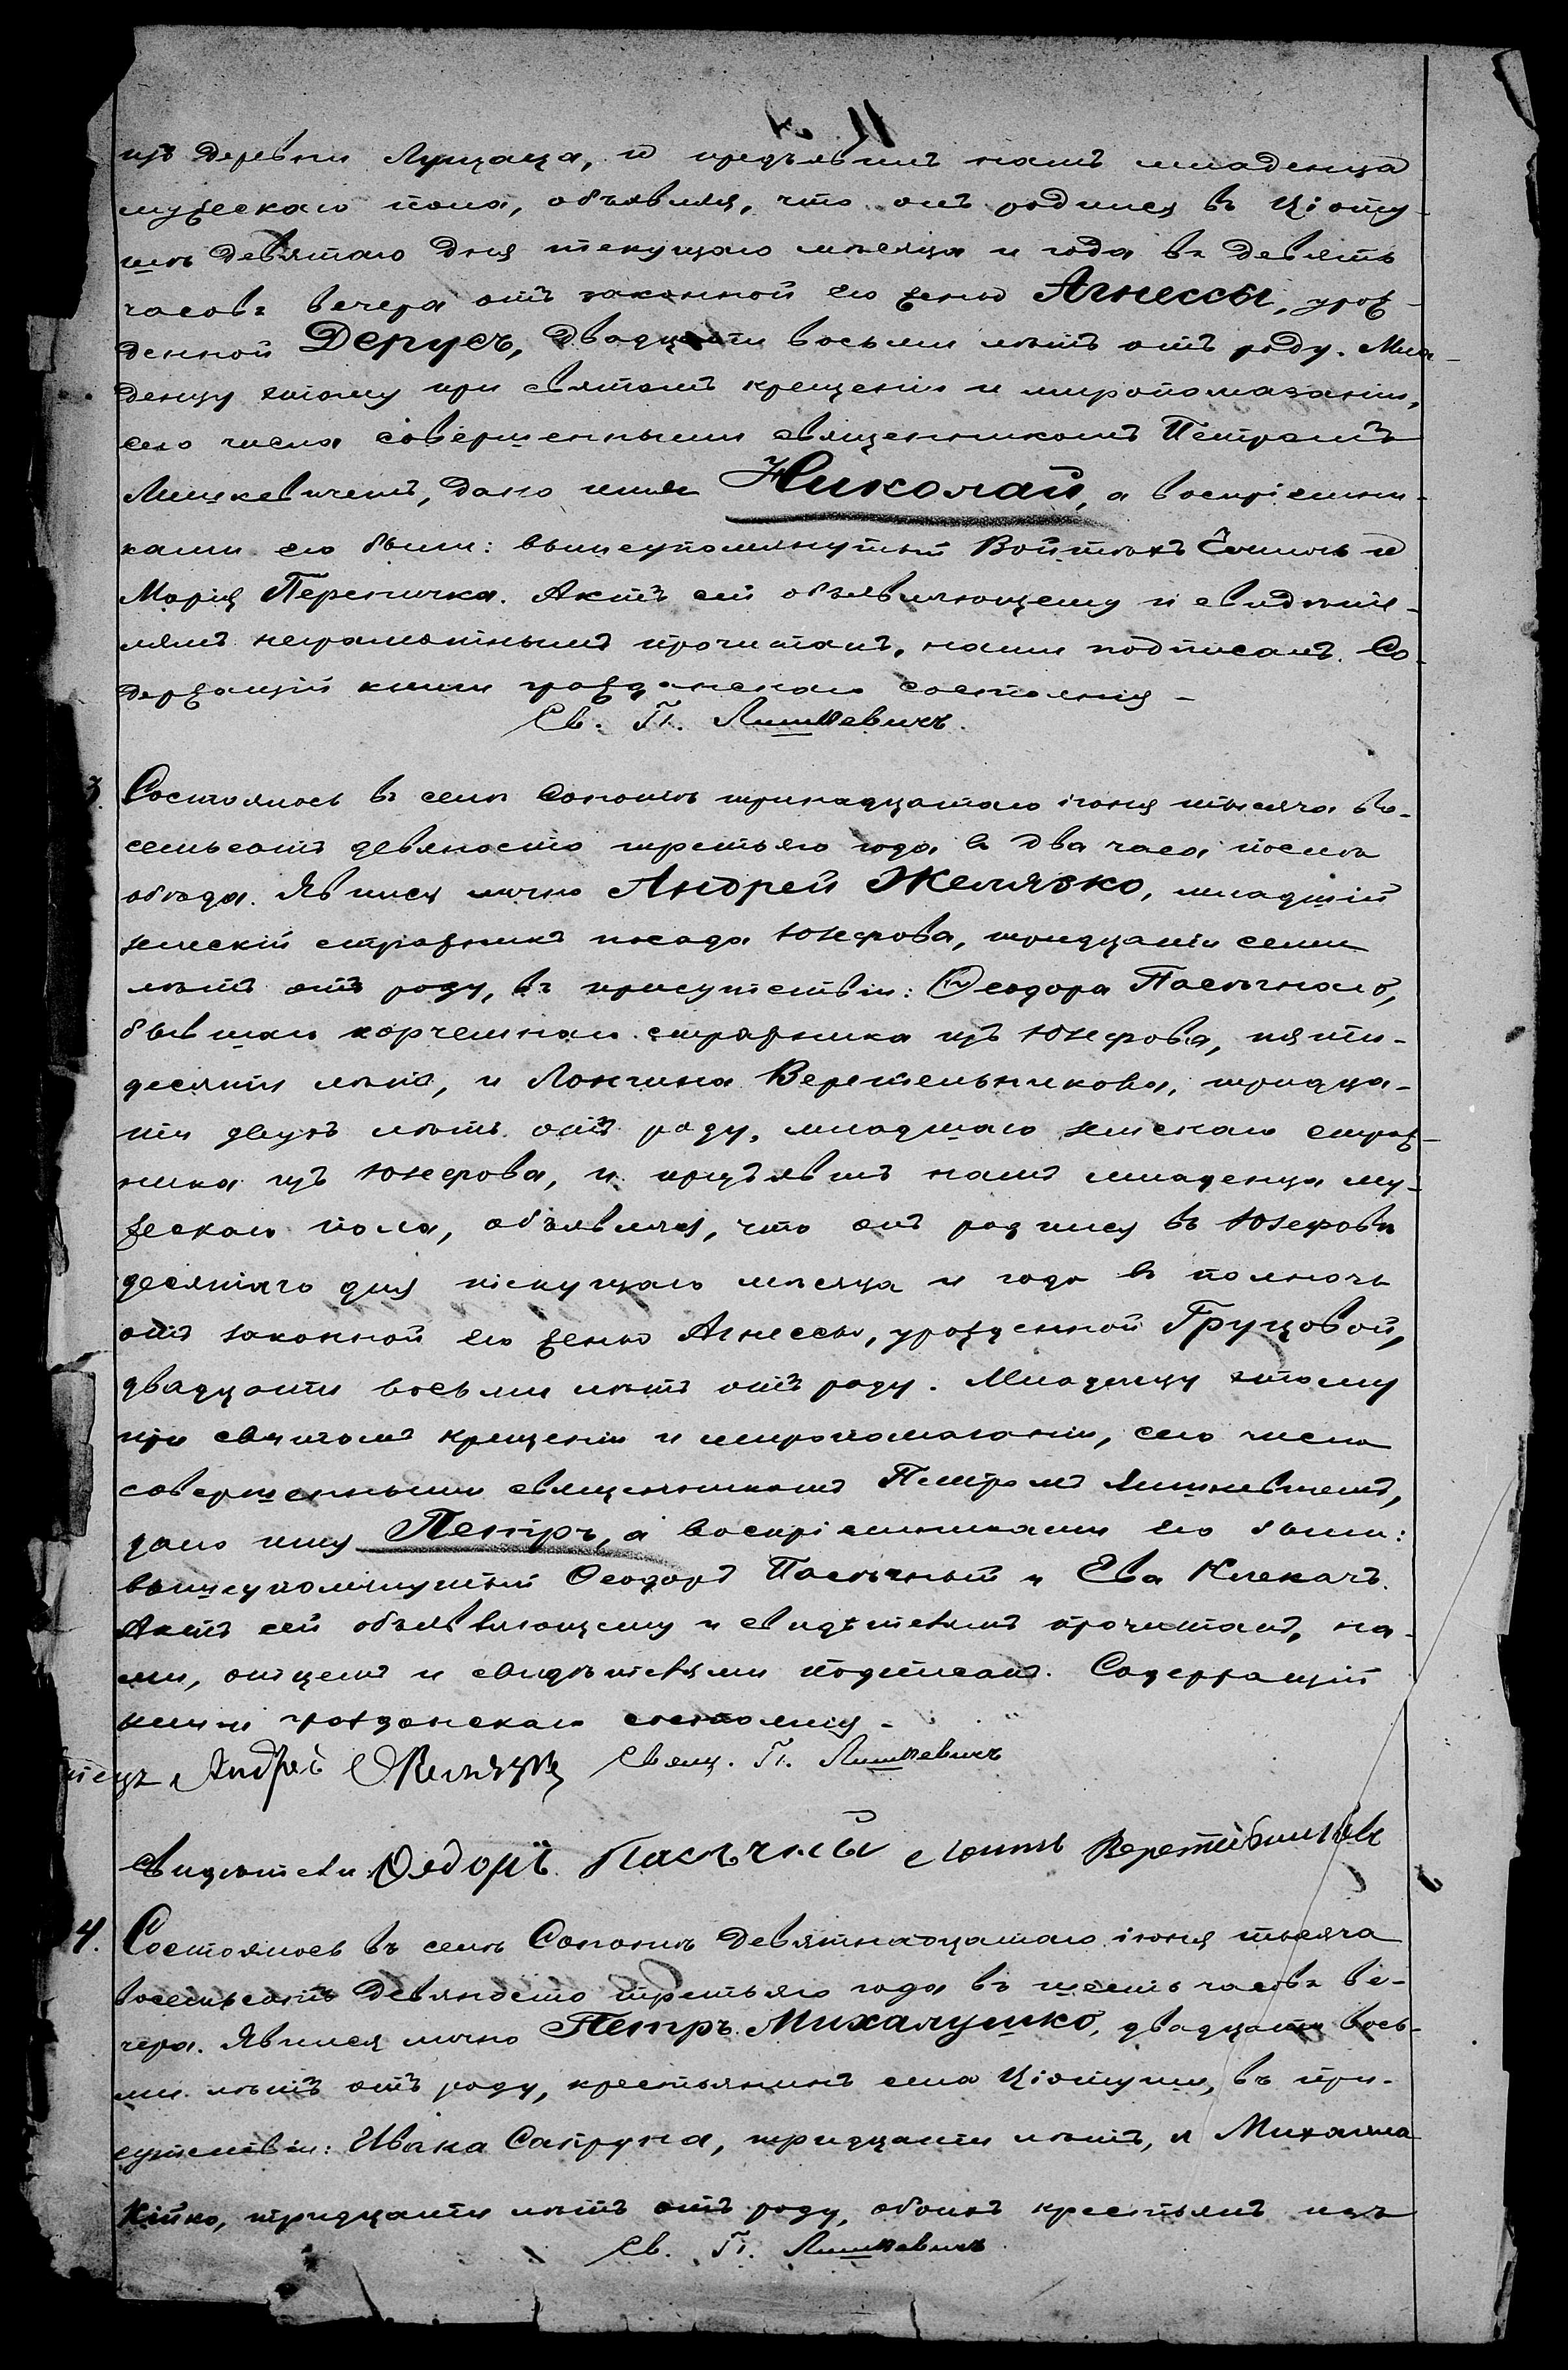 изъ деревни Лущаца, и предъявилъ намъ младенца
мужескаго пола, объявляя, что онъ родился въ Ціоту-
шѣ девятаго дня текущаго мѣсяца и года въ девять
часовъ вечера отъ законной его жены Агнессы, урож-
денной Дерусъ, двадцати восьми лѣтъ отъ роду. Мла-
денцу этому при святомъ крещеніи и миропомазаніи,
сего числа совершенными священникомъ Петромъ
Лишкевичемъ, дано имя Николай, а воспріемни-
ками его были: вышеупомянутый Войтюкъ и
Марія Перепичка. Актъ сей объявляющему и свидѣте-
лямъ неграмотнымъ прочитанъ, нами подписанъ. Со-
держащій книги гражданскаго состоянія –
Св. П. Лишкевичъ.
3. Состоялось въ селѣ Сопотѣ тринадцатаго іюня тысяча во-
семьсотъ девяносто третьяго года въ два часа послѣ
обѣда. Явился лично Андрей Желязко, младшій
земскій стражникъ посада Юзефова, тридцати семи
лѣтъ отъ роду, въ присутствіи: Ѳеодора Пасѣчнаго,
бывшаго корчемнаго стражника изъ Юзефова, пяти-
десяти лѣтъ, и Лонгина Веретельникова, тридца-
ти двухъ лѣтъ отъ роду, младшаго земскаго страж-
ника изъ Юзефова, и предъявилъ намъ младенца му-
жескаго пола, объявляя, что онъ родился въ Юзефовѣ
десятаго дня текущаго мѣсяца и года въ полночь
отъ законной его жены Агнессы, урожденной Груцовой,
двадцати восьми лѣтъ отъ роду. Младенцу этому
при святомъ крещеніи и миропомазаніи, сего числа
совершенными священникомъ Петромъ Лишкевичемъ,
дано имя Петръ, а воспріемниками его были:
вышеупомянутый Ѳеодоръ Пасѣчный и Ева Клекачъ.
Актъ сей объявляющему и свидѣтелямъ прочитанъ, на-
ми, отцемъ и свидѣтелями подписанъ. Содержащій
книги гражданскаго состоянія –
Отецъ Андрей Свящ. П. Лишкевичъ
Свидѣтели Ѳедоръ Пасѣчный
4. Состоялось въ селѣ Сопотѣ девятнадцатаго іюня тысяча
восемьсотъ девяносто третьяго года въ шесть часовъ ве-
чера. Явился лично Петръ Михалушко, двадцати вось-
ми лѣтъ отъ роду, крестьянинъ села Ціотуши, въ при-
сутствіи: Ивана Сапруна, тридцати лѣтъ, и Михаила
Кійко, тридцати лѣтъ отъ роду, обоихъ крестьянъ изъ
Св. П. Лишкевичъ